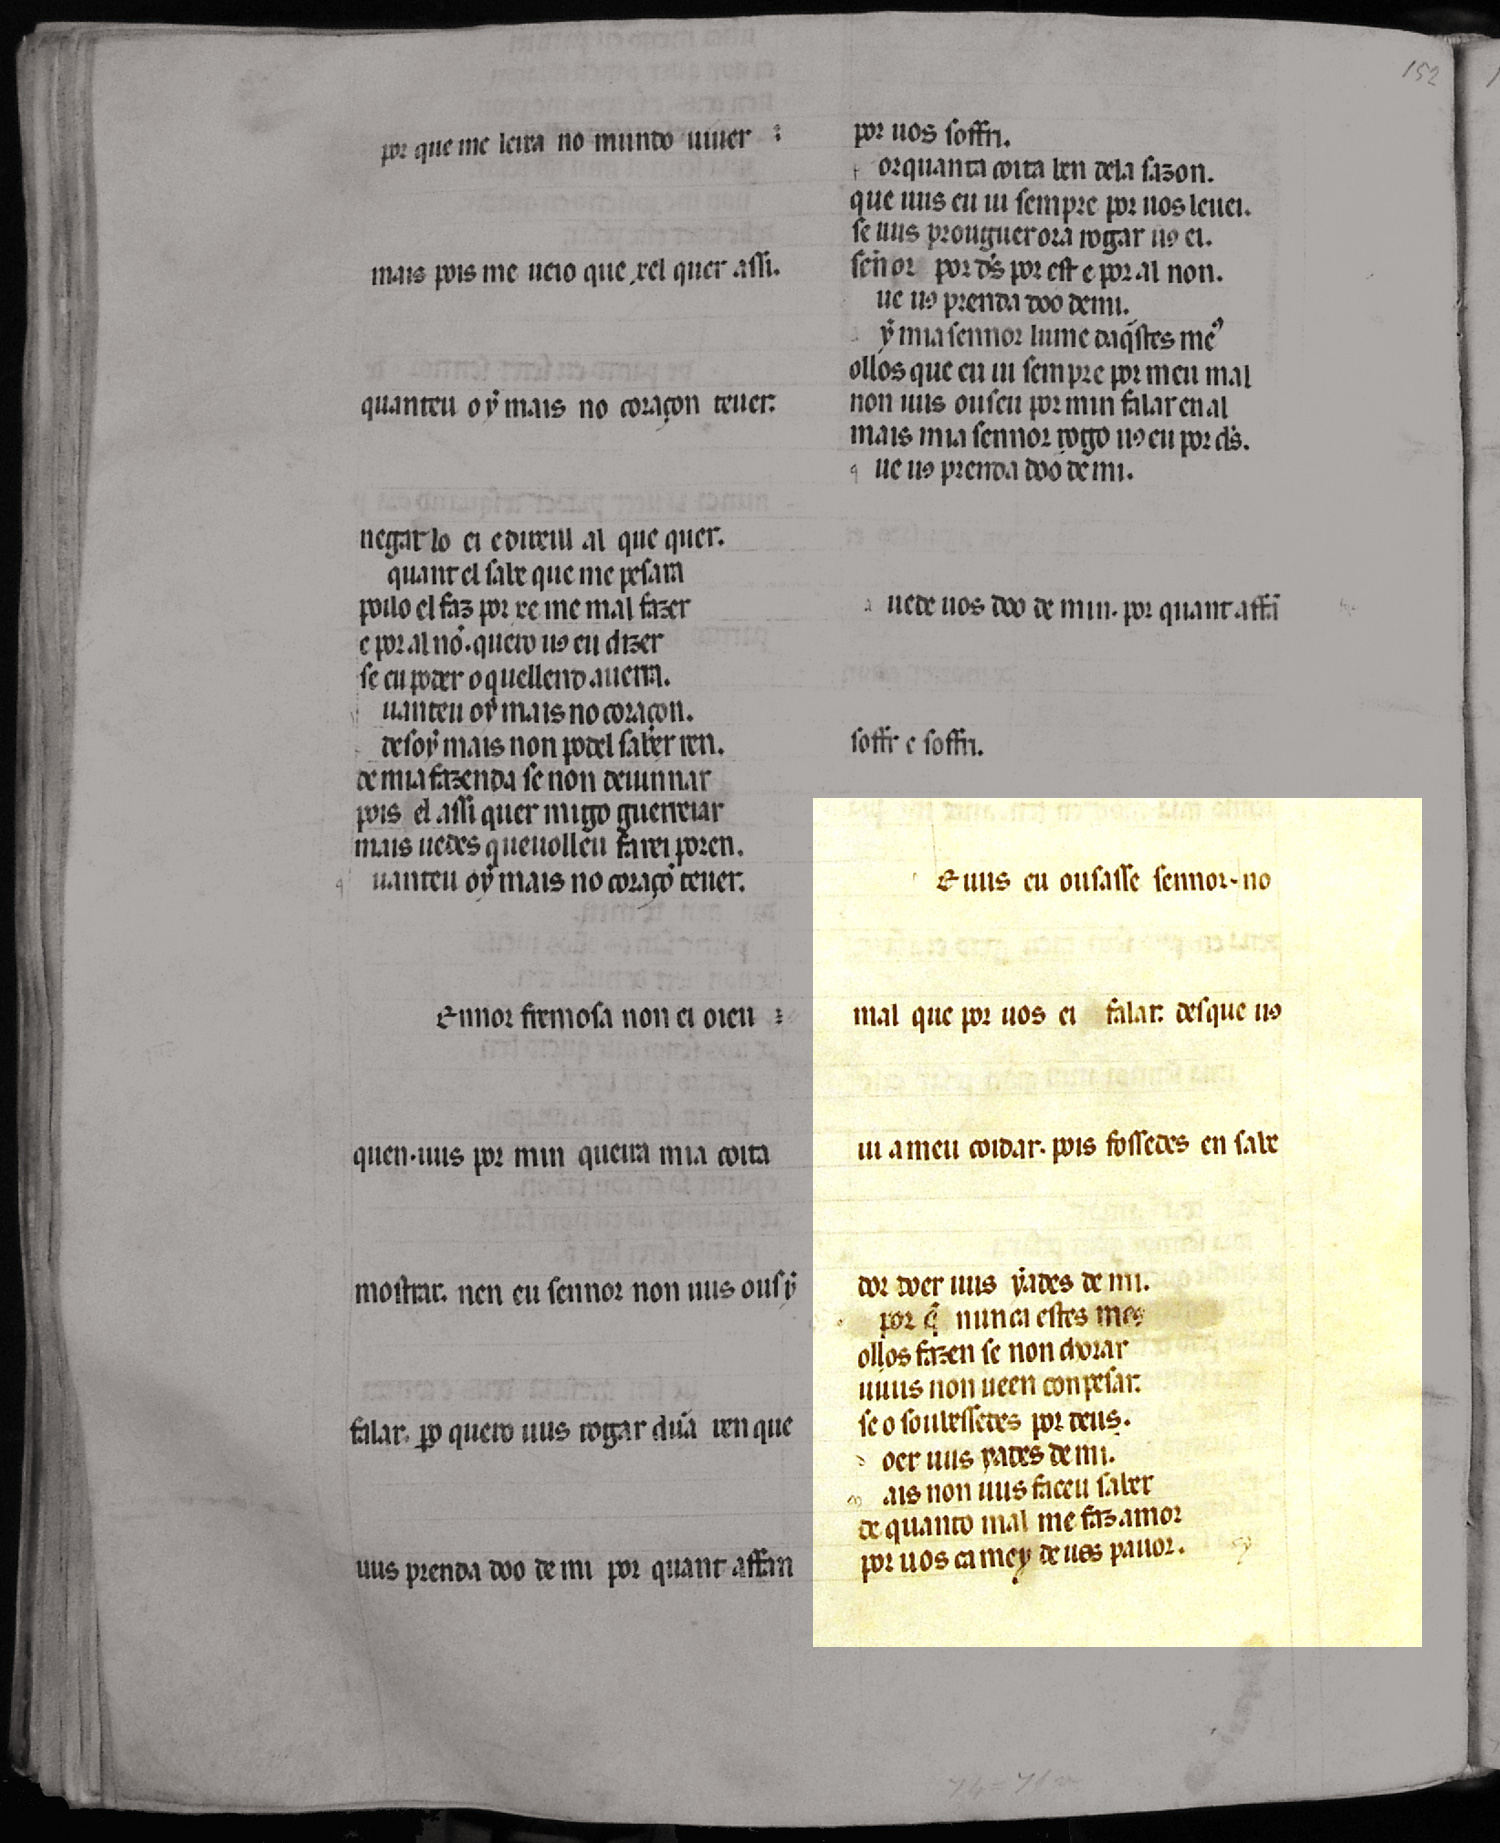 por que me leixa no mundo uiuer :
mais pois me ueio que xel quer assi.
quanteu oỹ mais no coraçon teuer.
negar lo ei e direill al que quer.
quant el sabe que me pesara
poilo el faz por xe me mal fazer
e por al nõ. quero uꝯ eu dizer
se eu poder o quellend auerra.
uanteu oỹ mais no coraçon.
desoỹ mais non podel saber ren.
de mia fazenda se non deuinnar
pois el assi quer migo guerreiar
mais uedes queuolleu farei poren.
q uanteu oỹ mais no coraçõ teuer.
Ennor fremosa non ei oieu :
quen.uus por min queira mia coita
mostrar. nen eu sennor non uus ous ỹ
falar. ꝑo quero uus rogar dũa ren que
uus prenda doo de mi por quant affan
por uos soffri.
p orquanta coita ben dela sazon.
que uus eu ui sempre por uos leuei.
se uus prouguer ora rogar uꝯ ei.
señor por d̃s por est e por al non.
ue uꝯ prenda doo de mi.
ỹ mia sennor lume daq̃stes meꝯ
ollos que eu ui sempre por meu mal
non uus ouseu por min falar en al
mais mia sennor rogo uꝯ eu por d̃s.
q ue uꝯ prenda doo de mi.
a uede uos doo de min. por quant affã
soffr e soffri.
E uus eu ousasse sennor. no
mal que por uos ei falar. desque uꝯ
ui a meu coidar. pois fossedes en sabe
dor doer uus ỹades de mi.
por q̃ nunca estes meꝯ
ollos fazen se non chorar
u uus non ueen con pesar.
se o soubessedes por deus.
d oer uus yades de mi.
m ais non uus faceu saber
de quanto mal me faz amor
por uos ca mey de uos pauor.
152